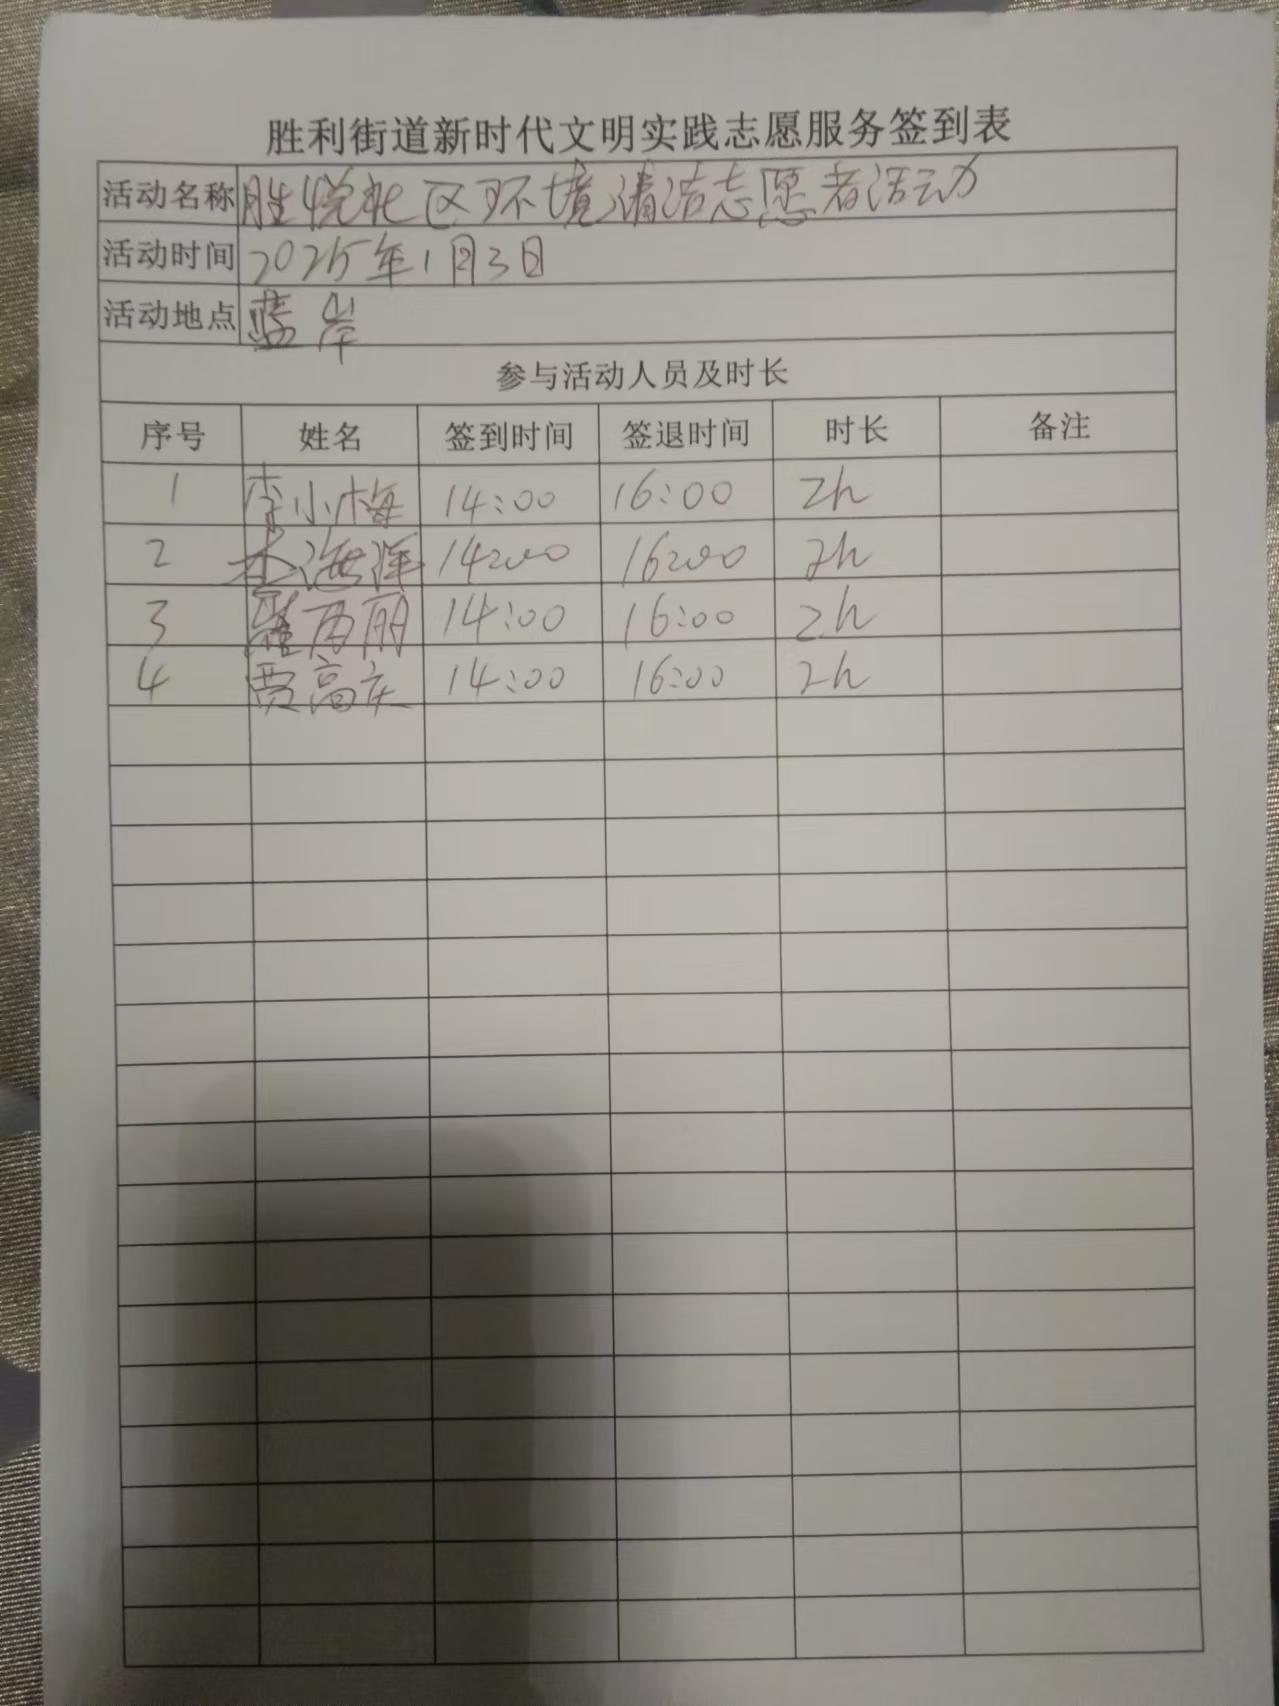 胜利街道新时代文明实践志愿服务签到表
活动名称 胜悦社区环境清洁志愿者活动
活动时间 2025年1月3日
活动地点 蓝岸
参与活动人员及时长
序号 姓名 签到时间 签退时间 时长 备注
1 李小梅 14:00 16:00 2h
2 海洋 14:00 16:00 2h
3 丽 14:00 16:00 2h
4 贾高庆 14:00 16:00 2h